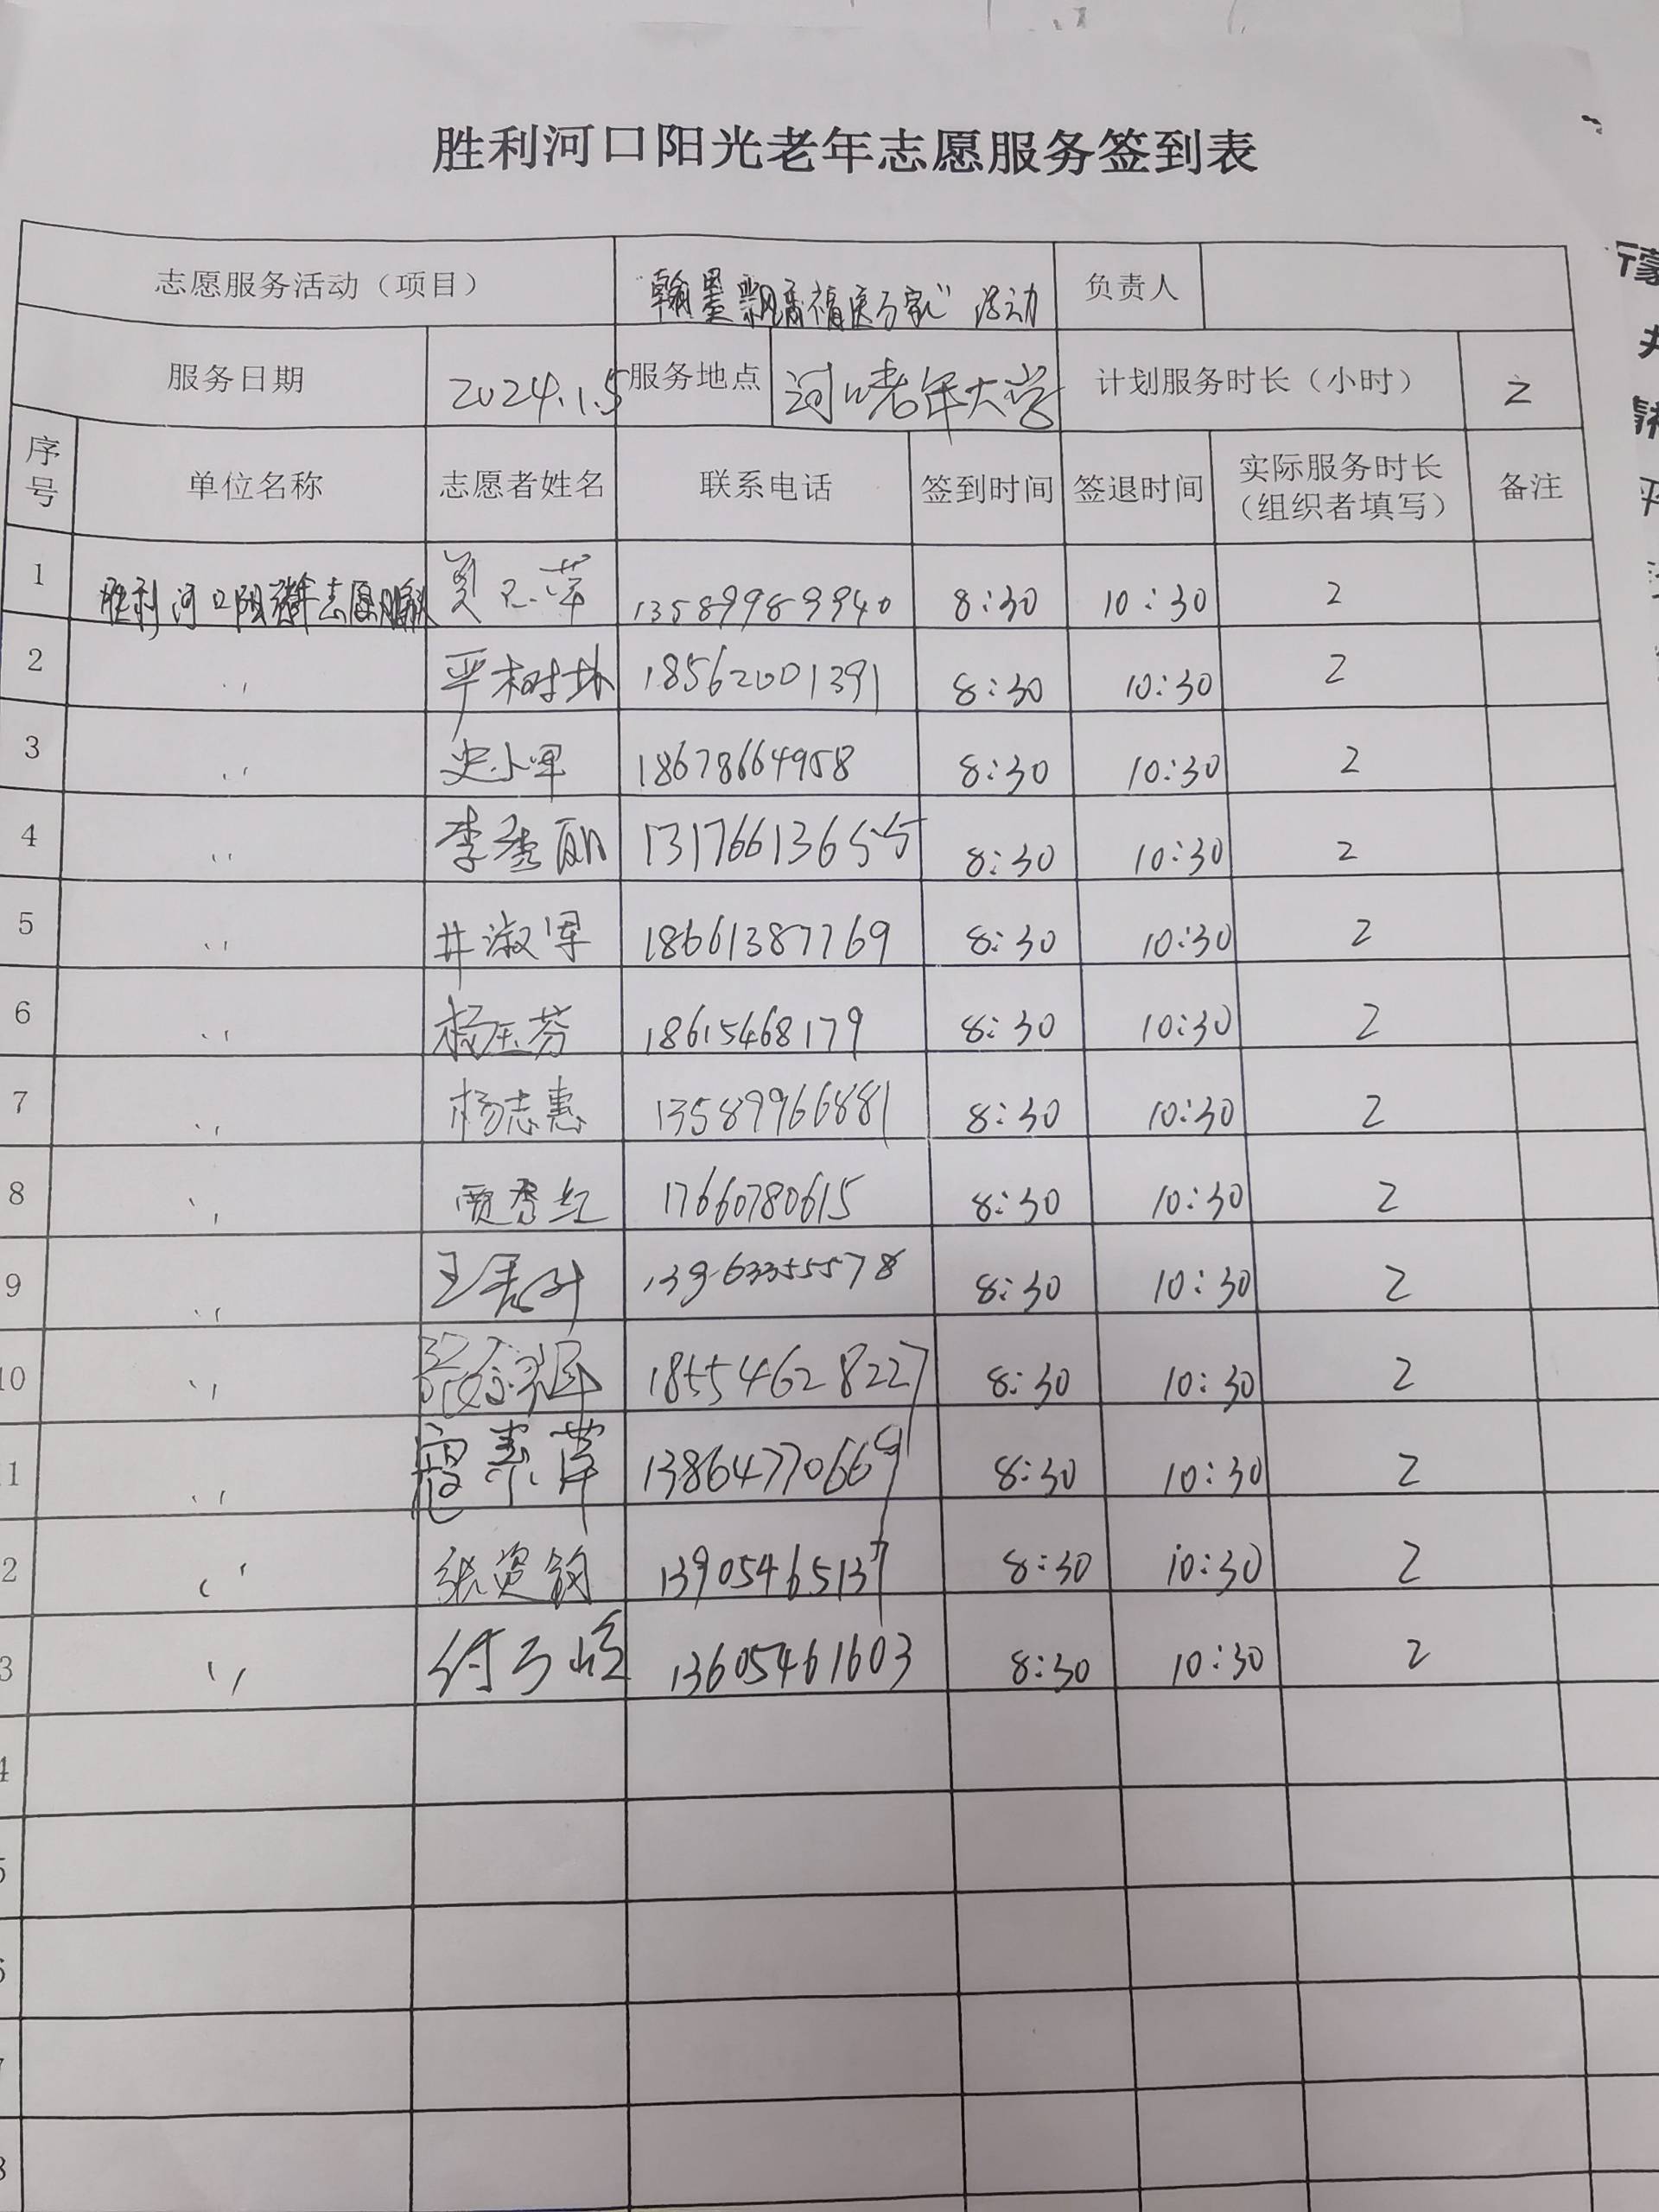 胜利河口阳光老年志愿服务签到表
志愿服务活动（项目） 翰墨飘香福送万家 活动 负责人
服务日期 2024.1.5 服务地点 河口老年大学 计划服务时长（小时） 2
序号 单位名称 志愿者姓名 联系电话 签到时间 签退时间 实际服务时长（组织者填写） 备注
1 胜利河口阳光老年志愿服务队 13589989940 8:30 10:30 2
2 〃 严树林 18562001391 8:30 10:30 2
3 〃 史小军 18678664958 8:30 10:30 2
4 〃 李秀丽 13176613655 8:30 10:30 2
5 〃 井淑军 18661387769 8:30 10:30 2
6 〃 杨玉芬 18615468179 8:30 10:30 2
7 〃 杨志惠 13589966881 8:30 10:30 2
8 〃 贾秀红 17660780615 8:30 10:30 2
9 〃 13963355578 8:30 10:30 2
10 〃 18554628227 8:30 10:30 2
1 〃 寇素萍 13864770669 8:30 10:30 2
2 〃 张贤钧 13905465137 8:30 10:30 2
3 〃 13605461603 8:30 10:30 2
4
5
6
7
8